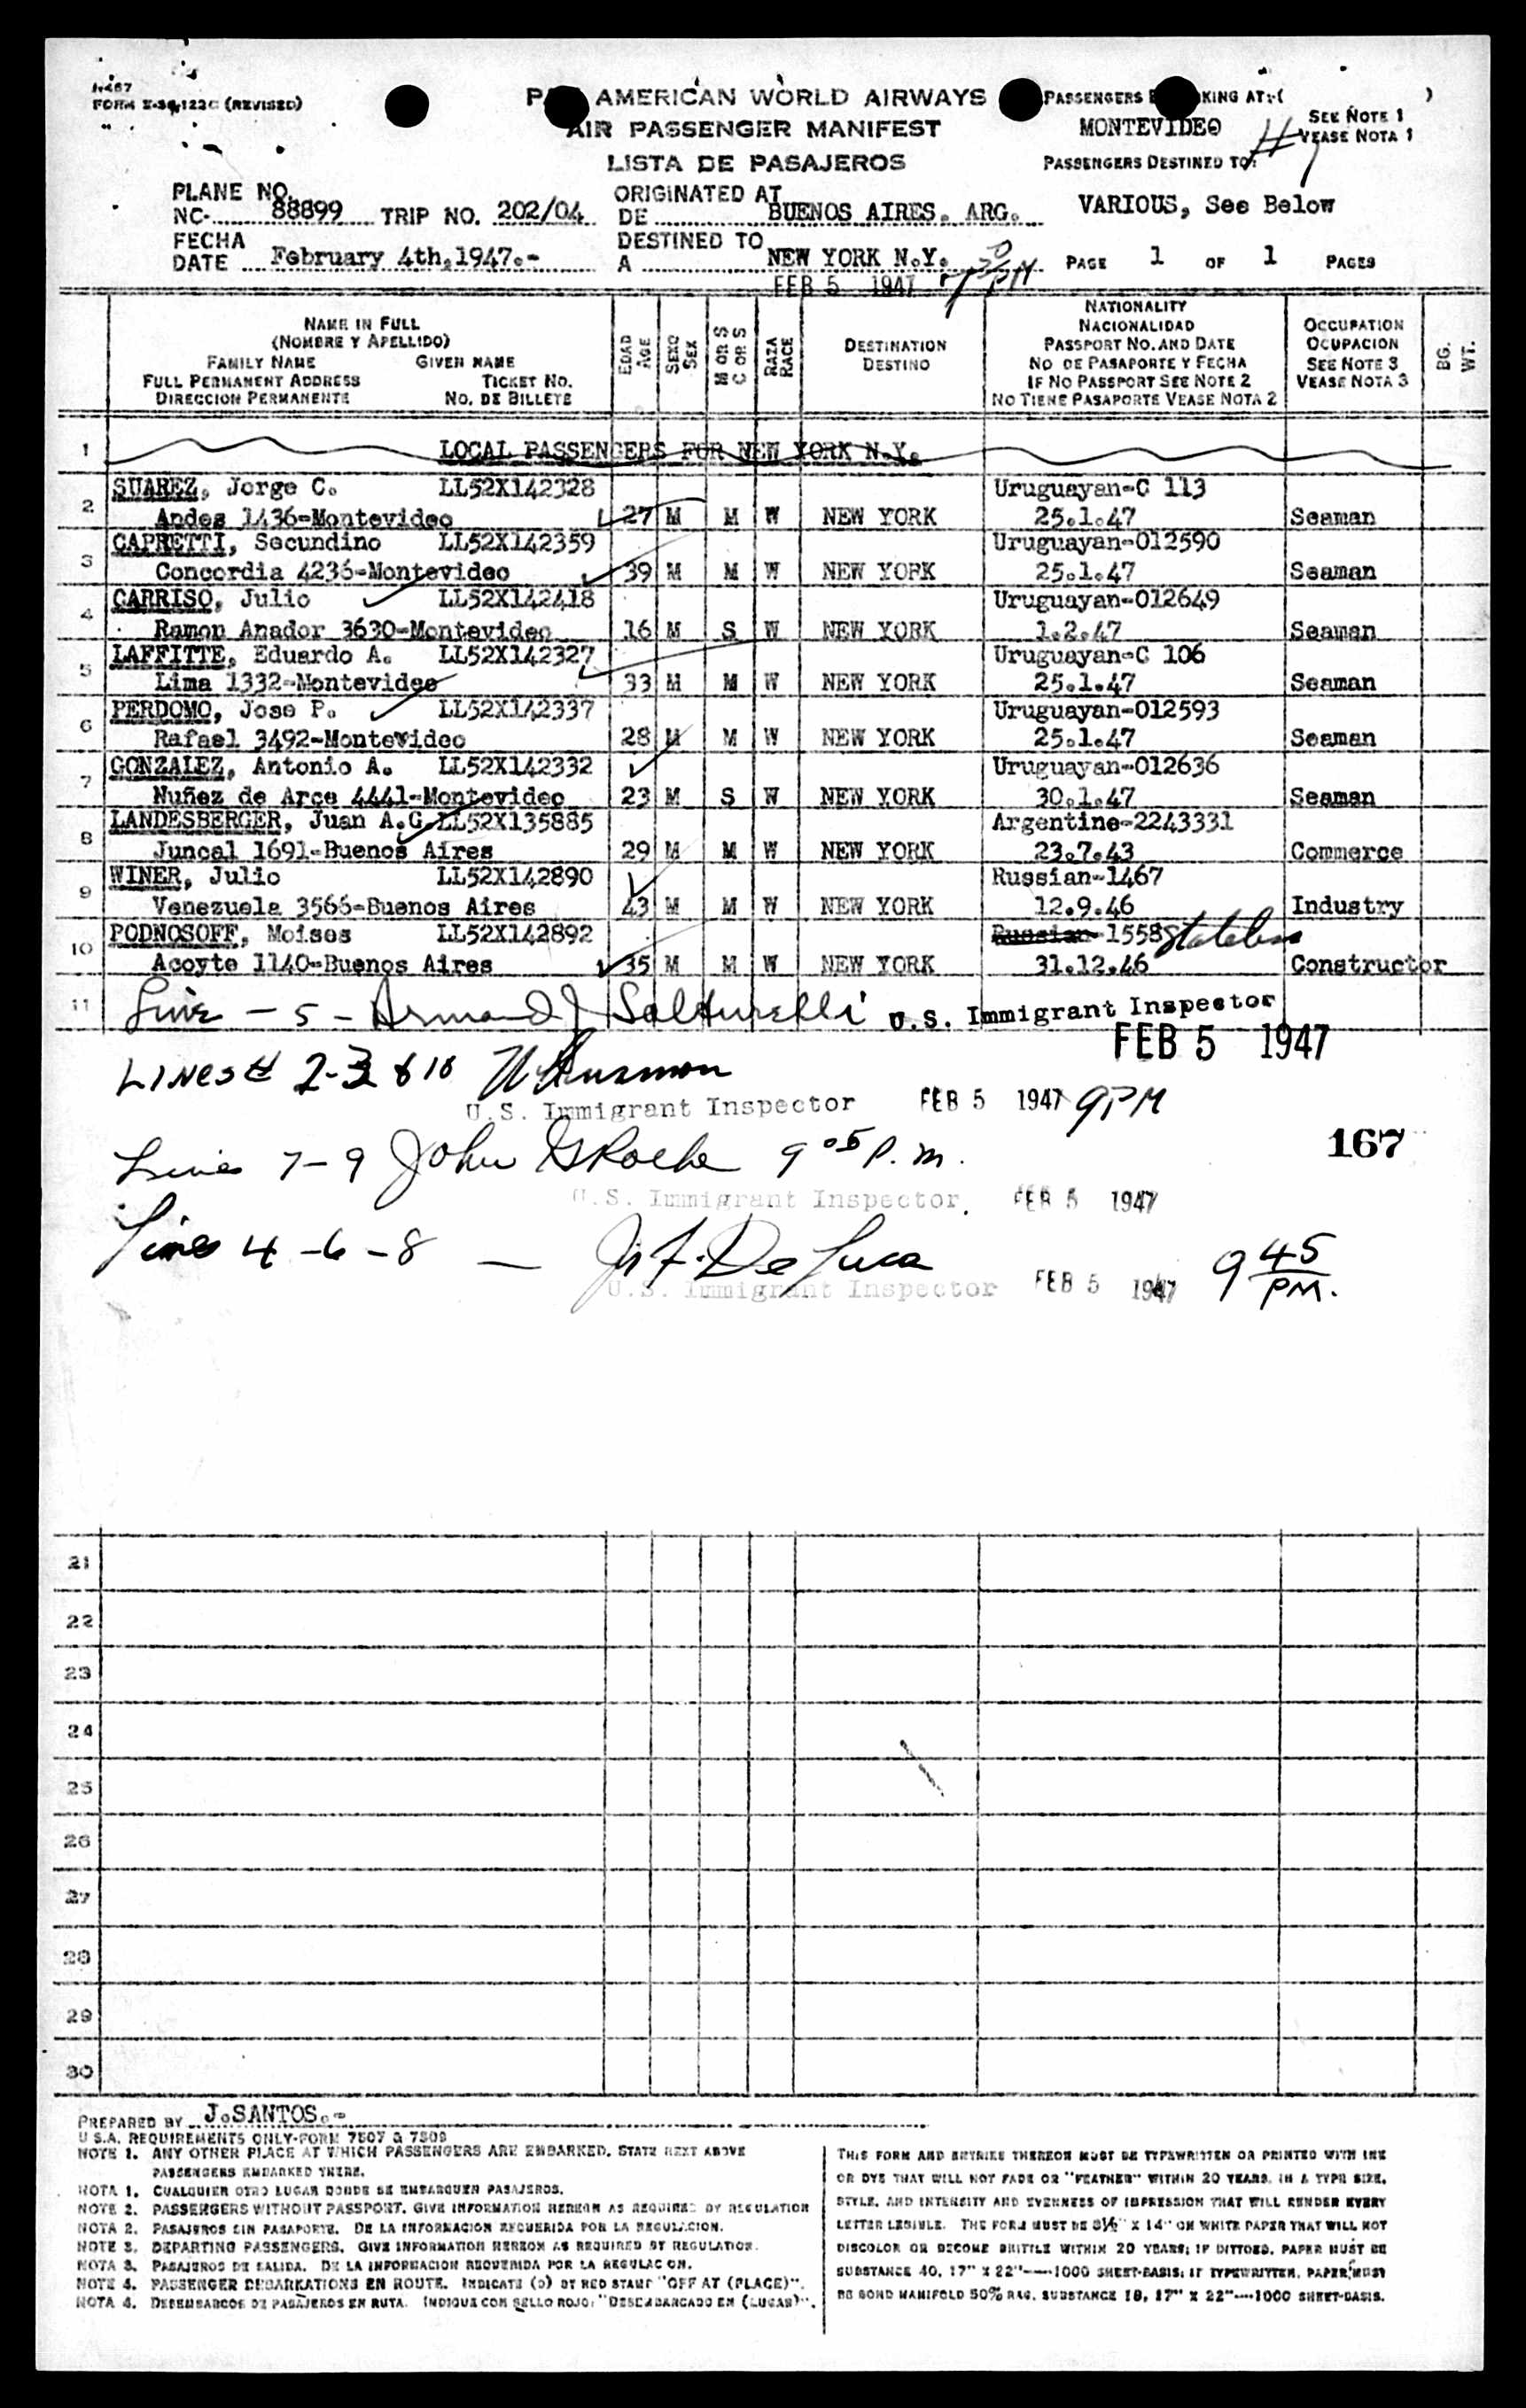 N467
FORM E-36,122C (REVISED)
PAN AMERICAN WORLD AIRWAYS
AIR PASSENGER MANIFEST
LISTA DE PASAJEROS
PASSENGERS KING AT:( )
MONTEVIDEO
SEE NOTE 1
VEASE NOTA 1
PASSENGERS DESTINED TO:
VARIOUS, See Below
PLANE NO.
NC- 88899 TRIP NO. 202/04
FECHA
DATE February 4th,1947.-
ORIGINATED AT
DE BUENOS AIRES. ARG.
DESTINED TO
A NEW YORK N.Y. 7 30 PM
FEB 5 1947
PAGE 1 OF 1 PAGES
NAME IN FULL
(NOMBRE Y APELLIDO)
FAMILY NAME GIVEN NAME
FULL PERMANENT ADDRESS TICKET NO.
DIRECCION PERMANENTE NO. DE BILLETE
EDAD
AGE
SEXO
SEX
M OR S
C OR S
RAZA
RACE
DESTINATION
DESTINO
NATIONALITY
NACIONALIDAD
PASSPORT NO. AND DATE
NO DE PASAPORTE Y FECHA
IF NO PASSPORT SEE NOTE 2
NO TIENE PASAPORTE VEASE NOTA 2
OCCUPATION
OCUPACION
SEE NOTE 3
VEASE NOTA 3
BG.
WT.
1 LOCAL PASSENGERS FOR NEW YORK N.Y.
2 SUAREZ, Jorge C. LL52X142328 Uruguayan-C 113
Andes 1436-Montevideo 27 M M W NEW YORK 25.1.47 Seaman
3 CAPRETTI, Secundino LL52X142359 Uruguayan-012590
Concordia 4236-Montevideo 39 M M W NEW YORK 25.1.47 Seaman
4 CARRISO, Julio LL52X142418 Uruguayan-012649
Ramon Anador 3630-Montevideo 16 M S W NEW YORK 1.2.47 Seaman
5 LAFFITTE, Eduardo A. LL52X142327 Uruguayan-C 106
Lima 1332-Montevideo 33 M M W NEW YORK 25.1.47 Seaman
6 PERDOMO, Jose P. LL52X142337 Uruguayan-012593
Rafael 3492-Montevideo 28 M M W NEW YORK 25.1.47 Seaman
7 GONZALEZ, Antonio A. LL52X142332 Uruguayan-012636
Nuñez de Arce 4441-Montevideo 23 M S W NEW YORK 30.1.47 Seaman
8 LANDESBERGER, Juan A.G. LL52X135885 Argentine-2243331
Juncal 1691-Buenos Aires 29 M M W NEW YORK 23.7.43 Commerce
9 WINER, Julio LL52X142890 Russian-1467
Venezuela 3566-Buenos Aires 43 M M W NEW YORK 12.9.46 Industry
10 PODNOSOFF, Moises LL52X142892 Russian-1558 Stateless
Acoyte 1140-Buenos Aires 35 M M W NEW YORK 31.12.46 Constructor
11 Line - 5 - Armand J Salturelli U.S. Immigrant Inspector
FEB 5 1947
LINES # 2-3 & 10
U.S. Immigrant Inspector FEB 5 1947 9PM
Lines 7-9 John G Roche 9 05 P.m.
167
U.S. Immigrant Inspector. FEB 5 1947
Lines 4-6-8 — De Luca 9 45 PM.
U.S. Immigrant Inspector FEB 5 1947
21
22
23
24
25
26
27
28
29
30
PREPARED BY J.SANTOS.-
U S.A. REQUIREMENTS ONLY-FORM 7507 & 7509
NOTE 1. ANY OTHER PLACE AT WHICH PASSENGERS ARE EMBARKED. STATE NEXT ABOVE
PASSENGERS EMBARKED THERE.
NOTA 1. CUALQUIER OTRO LUGAR DONDE SE EMBARQUEN PASAJEROS.
NOTE 2. PASSENGERS WITHOUT PASSPORT. GIVE INFORMATION HEREON AS REQUIRED BY REGULATION
NOTA 2. PASAJEROS SIN PASAPORTE. DE LA INFORMACION REQUERIDA POR LA REGULACION.
NOTE 3. DEPARTING PASSENGERS. GIVE INFORMATION HEREON AS REQUIRED BY REGULATION.
NOTA 3. PASAJEROS DE SALIDA. DE LA INFORMACION REQUERIDA POR LA REGULACION.
NOTE 4. PASSENGER DEBARKATIONS EN ROUTE. INDICATE (D) BY RED STAMP "OFF AT (PLACE)".
NOTA 4. DESEMBARCOS DE PASAJEROS EN RUTA. INDIQUE CON SELLO ROJO: "DESEMBARCADO EN (LUGAR)".
THIS FORM AND ENTRIES THEREON MUST BE TYPEWRITTEN OR PRINTED WITH INK
OR DYE THAT WILL NOT FADE OR "FEATHER" WITHIN 20 YEARS, IN A TYPE SIZE,
STYLE, AND INTENSITY AND EVENNESS OF IMPRESSION THAT WILL RENDER EVERY
LETTER LEGIBLE. THE FORM MUST BE 8½" X 14" ON WHITE PAPER THAT WILL NOT
DISCOLOR OR BECOME BRITTLE WITHIN 20 YEARS; IF DITTOED, PAPER MUST BE
SUBSTANCE 40, 17" X 22"----1000 SHEET-BASIS; IF TYPEWRITTEN, PAPER MUST
BE BOND MANIFOLD 50% RAG, SUBSTANCE 18, 17" X 22"----1000 SHEET-BASIS.